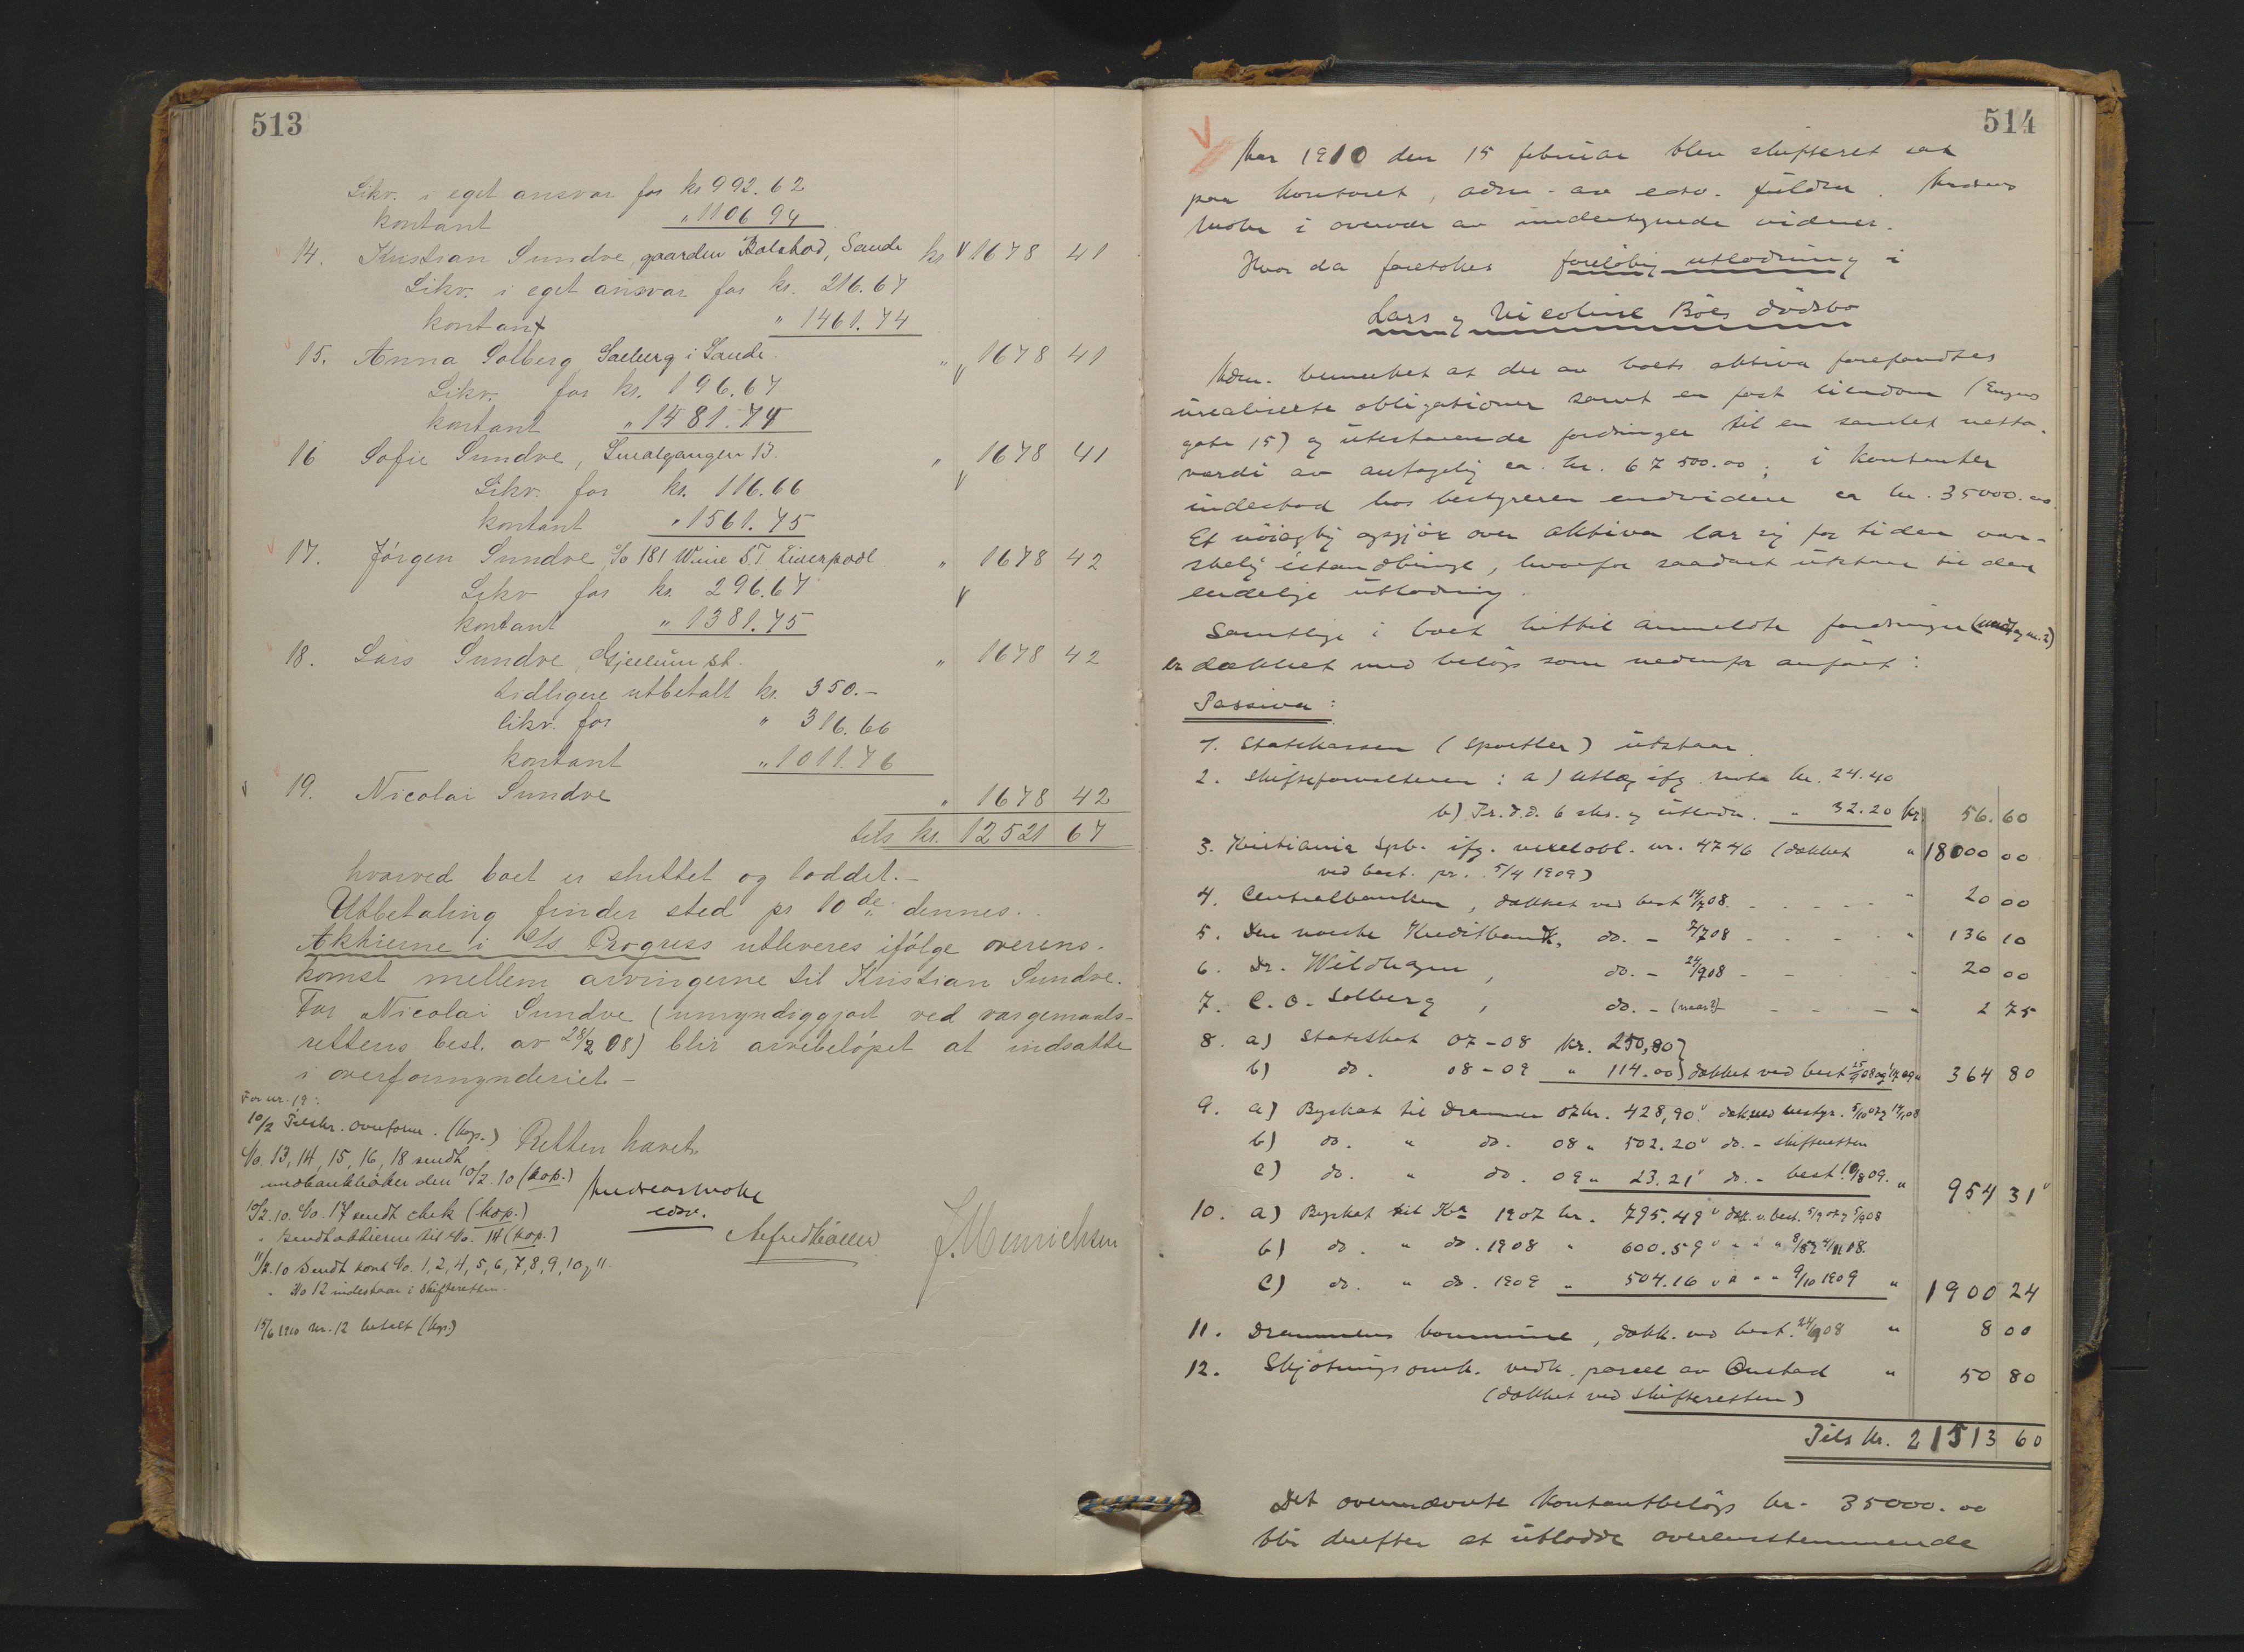 513
Likv. i eget ansvar for kr 992.62
kontant " 1106 94
14. Kristian Sundve, gaarden Bolstad, Sande kr 1678 41
Likv. i eget ansvar for kr. 216.67
kontant " 1461.74
15. Anna Solberg Solberg i Sande. " 1678 41
Likv. for kr. 196.67
kontant " 1481.74
16 Sofie Sundve, Smalgangen 13. " 1678 41
Likv. for kr. 116.66
kontant " 1561.75
17. Jørgen Sundve, c/o 181 Wine St. Liverpool " 1678 42
Likv for kr. 296.67
kontant " 1381.75
18. Lars Sundve, Gjellum st. " 1678 42
tidligere utbetalt kr. 350.-
likv. for " 316.66
kontant " 1011.76
19. Nicolai Sundve " 1678 42
tils kr. 12521 67
hvorved boet er sluttet og loddet.-
Utbetaling finder sted pr 10de dennes.
Aktierne i A/s Progress utleveres ifølge overens-
komst mellem arvingerne til Kristian Sundve.
For Nicolai Sundve (umyndiggjort ved vergemaals-
rettens besl. av 28/2 08) blir arvebeløpet at indsætte
i overformynderiet -
For nr. 19:
10/2 Tilskr. overform. (kop.)
Retten hævet.
No. 13, 14, 15, 16, 18 sendt
med bankchæker den 10/2.10 (kop.)
Andreas Mohr
edsv.
10/2.10. No. 17 sendt chek (kop.)
" sendt aktierne til No. 14 (kop.)
Alfred Møller J. Henrichsen
11/2.10 sendt kont No. 1, 2, 4, 5, 6, 7, 8, 9, 10 og 11
" No 12 indestaar i skifteretten.
15/6 1910 nr. 12 betalt (kop.)
514
Aar 1910 den 15 februar blev skifteret sat
paa kontoret, adm. av edsv. fuldm. Andreas
Mohr i overvær av undertegnede vidner.
Hvor da foretokes foreløbig utlodning i
Lars og Nicoline Böes dödsbo
Adm. bemerket at der av boets aktiva forefandtes
urealiserte obligationer samt en fast eiendom (Engens
gate 15) og utestaaende fordringer til en samlet netto-
værdi av antagelig ca. kr. 67500.00; i kontanter
indestod hos bestyreren endvidere ca kr. 35000.00.
Et nöiagtig opgjör over aktiva lar sig for tiden van-
skelig istandbringe, hvorfor saadant utstaar til den
endelige utlodning.
Samtlige i boet hittil anmeldte fordringer (undtag nr. 2)
er dækket med belöp som nedenfor anfört:
Passiva:
1. Statskassen (sportler) utstaar.
2. Skifteforvalteren: a) Utlæg ifg. nota kr. 24.40
b) Pr. d.d. 6 sks. og utlodn. " 32.20 kr. 56.60
3. Kristiania Spb. ifg. vexelobl. nr. 4746 (dækket " 18000 00
ved best. pr. 5/4 1909)
4. Centralbanken, dækket ved best 14/7 08. " 20 00
5. Den norske Kreditbank, do. - 2/7 08 - " 136 10
6. Dr. Wildhagen, do. - 24/9 08 - " 20 00
7. C. O. Solberg, do. - (naar?) - " 2 75
8. a) Statsskat 07-08 kr. 250,80
b) do. 08-09 " 114.00 dækket ved best 25/9 08 og 1/7 09 " 364 80
9. a) Byskat til Drammen 07 kr. 428,90 dæk. ved bestyr. 5/10 07 og 14/1 08
b) do. " do. 08 " 502.20 do. - skifteretten
c) do. " do. 09 " 23.21 do. - best. 10/8 09. " 954 31
10. a) Byskat til Kra 1907 kr. 795.49 dæk. v. best. 5/9 07 og 5/9 08
b) do. " do. 1908 " 600.59 " " " 8/8 og 4/11 08.
c) do. " do. 1909 " 504.16 " " " 9/10 1909 " 1900 24
11. Drammens kommune, dækk. ved best. 24/9 08 " 8 00
12. Skjötningsomk. vedk. parcel av Onstad " 50 80
(dækket ved skifteretten)
Tils kr. 21513 60
Det ovennævnte kontantbelöp kr. 35000.00
blir derefter at utlodde overensstemmende